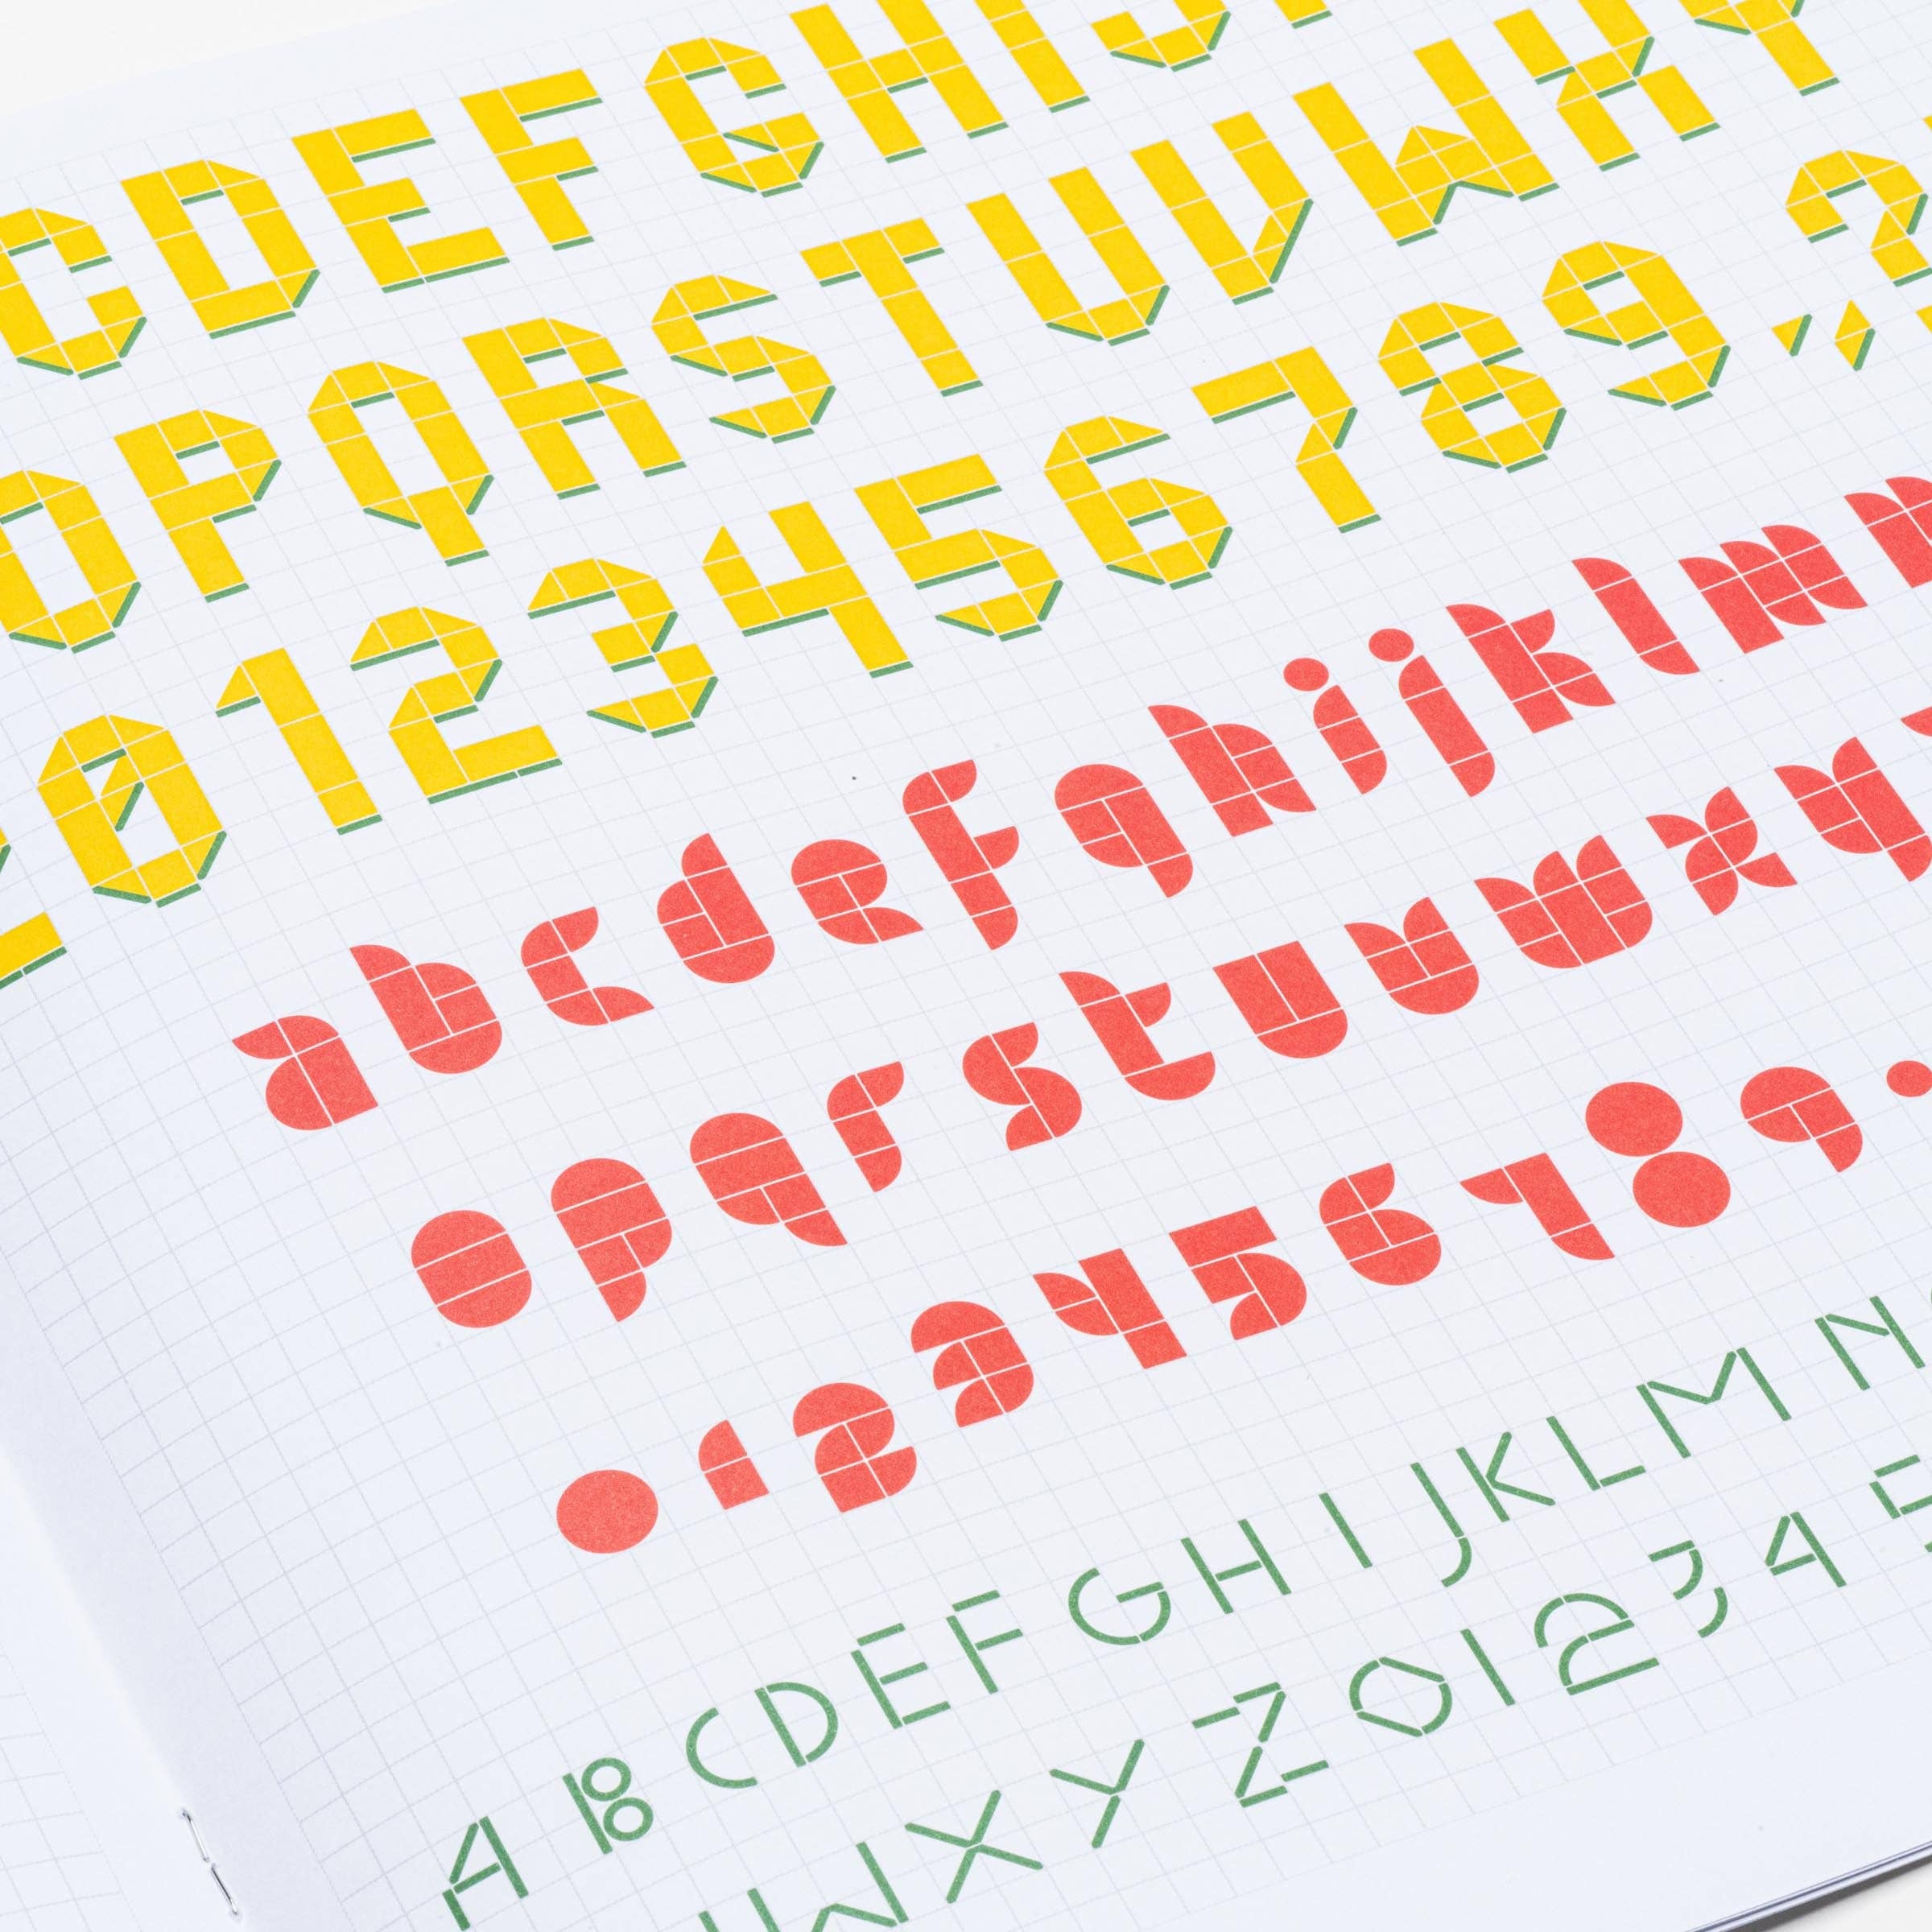 CDEFGHIJ
OPQRSTUVWXY
0123456789
abcdefghijklm
opqrstuvwxy
0123456789.
ABCDEFGHIJKLMN
WXYZ01234